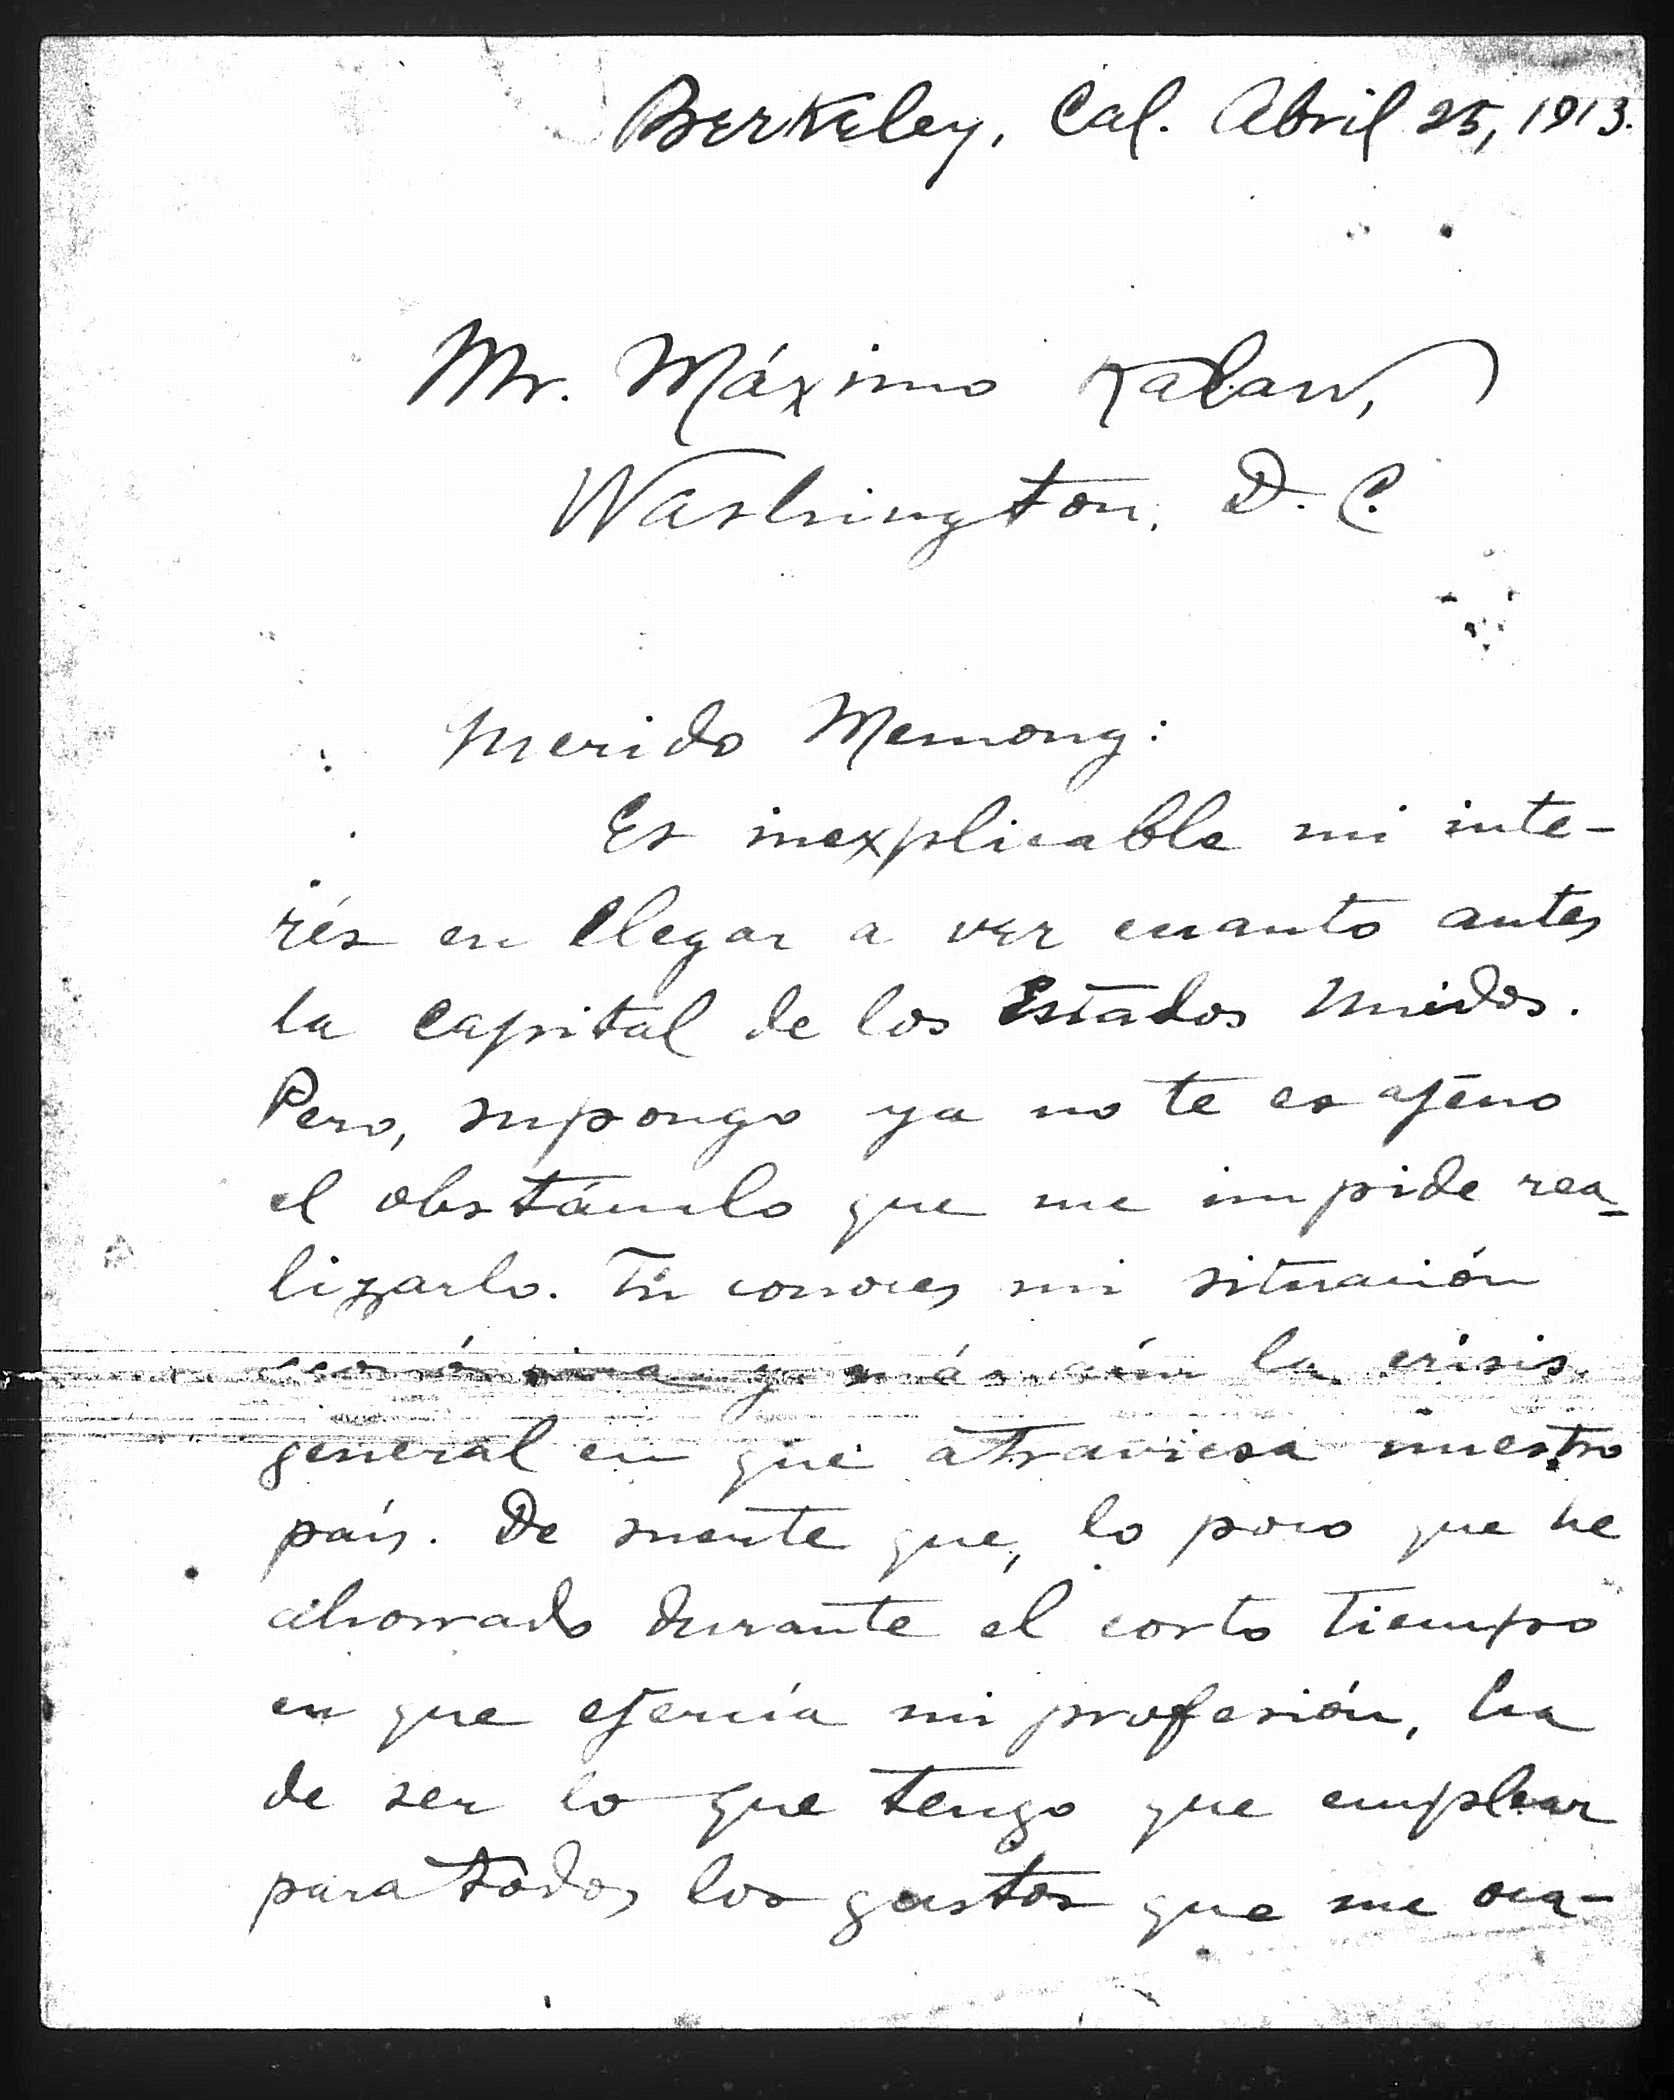 Berkeley, Cal. Abril 25, 1913.
Mr. Máximo Kalaw,
Washington, D. C.
Querido Memong:
Es inexplicable mi inte-
rés en llegar a ver cuanto antes
la capital de los Estados Unidos.
Pero, supongo ya no te es ajeno
el obstáculo que me impide rea-
lizarlo. Tú conoces mi situación
económica y más aún la crisis
general en que atraviesa nuestro
país. De suerte que, lo poco que he
ahorrado durante el corto tiempo
en que ejercía mi profesión, ha
de ser lo que tengo que emplear
para todos los gastos que me oca-